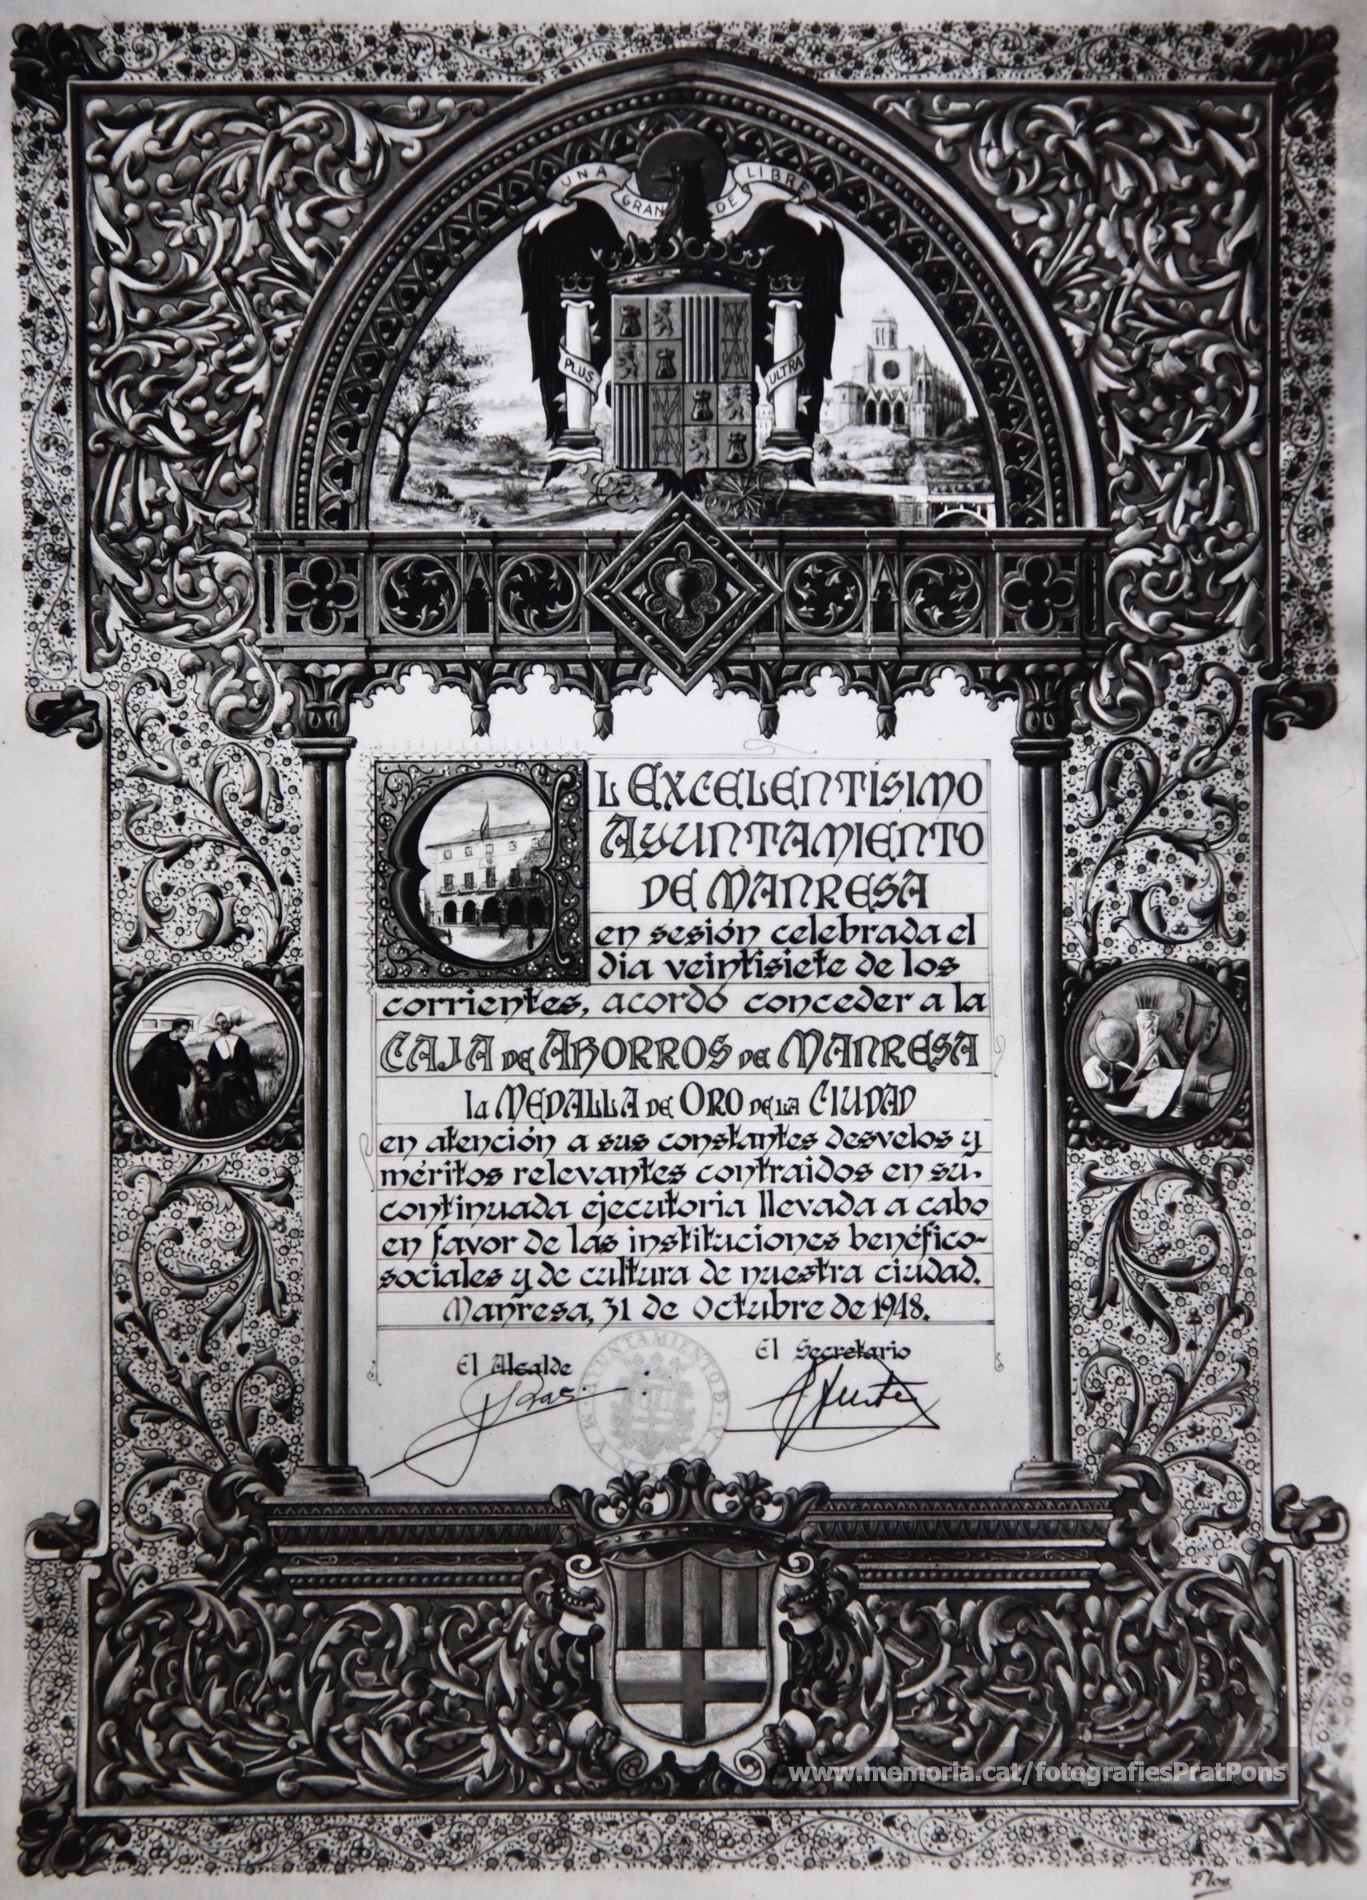 UNA GRANDE LIBRE
PLUS ULTRA
EL EXCELENTÍSIMO
AYUNTAMIENTO
DE MANRESA
en sesión celebrada el
dia veintisiete de los
corrientes, acordó conceder a la
CAJA DE AHORROS DE MANRESA
la MEDALLA DE ORO DE LA CIUDAD
en atención a sus constantes desvelos y
méritos relevantes contraidos en su
continuada ejecutoria llevada a cabo
en favor de las instituciones benéfico-
sociales y de cultura de nuestra ciudad.
Manresa, 31 de Octubre de 1948.
El Alcalde
El Secretario
AYUNTAMIENTO DE
www.memoria.cat/fotografiesPratPons